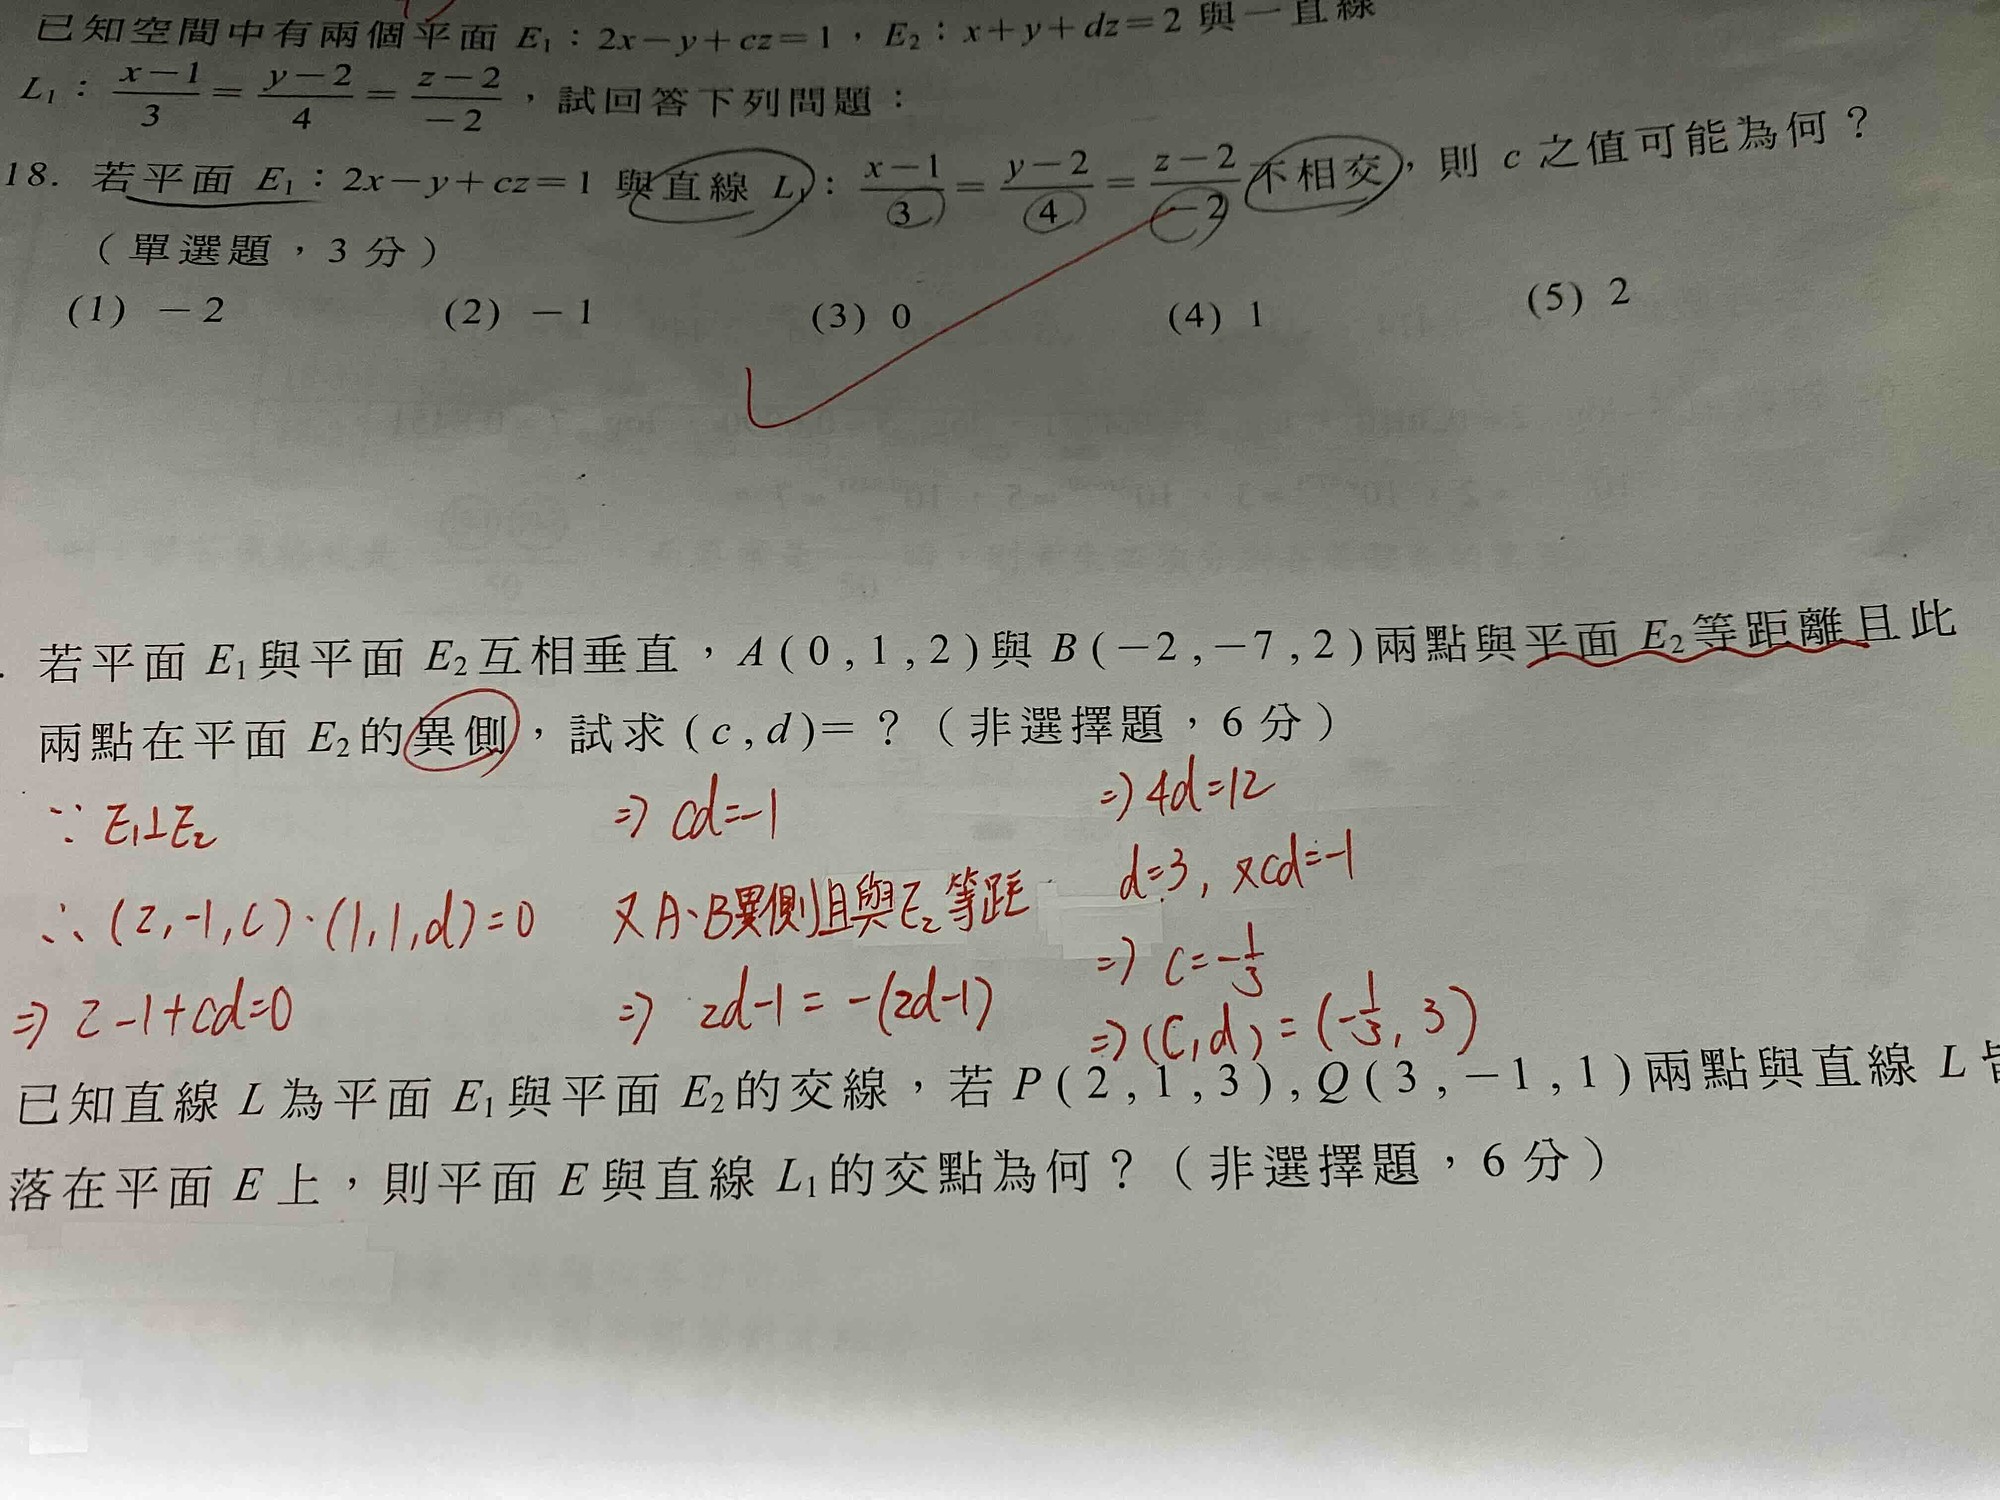 已知空間中有兩個平面 E₁：2x－y＋cz＝1，E₂：x＋y＋dz＝2 與一直線
L₁：(x－1)/3＝(y－2)/4＝(z－2)/－2，試回答下列問題：
18. 若平面 E₁：2x－y＋cz＝1 與直線 L₁：(x－1)/3＝(y－2)/4＝(z－2)/－2 不相交，則 c 之值可能為何？
（單選題，3 分）
(1) －2 (2) －1 (3) 0 (4) 1 (5) 2
若平面 E₁與平面 E₂互相垂直，A(0,1,2)與 B(－2,－7,2)兩點與平面 E₂等距離且此
兩點在平面 E₂的異側，試求(c,d)=？（非選擇題，6 分）
∵ E₁⊥E₂
∴ (2,-1,c)·(1,1,d)=0
⇒ 2-1+cd=0
⇒ cd=-1
又A、B異側且與E₂等距
⇒ 2d-1=-(2d-1)
⇒ 4d=12
d=3, 又cd=-1
⇒ c=-1/3
⇒ (c,d)=(-1/3, 3)
已知直線 L 為平面 E₁與平面 E₂的交線，若 P(2,1,3),Q(3,－1,1)兩點與直線 L
落在平面 E 上，則平面 E 與直線 L₁的交點為何？（非選擇題，6 分）